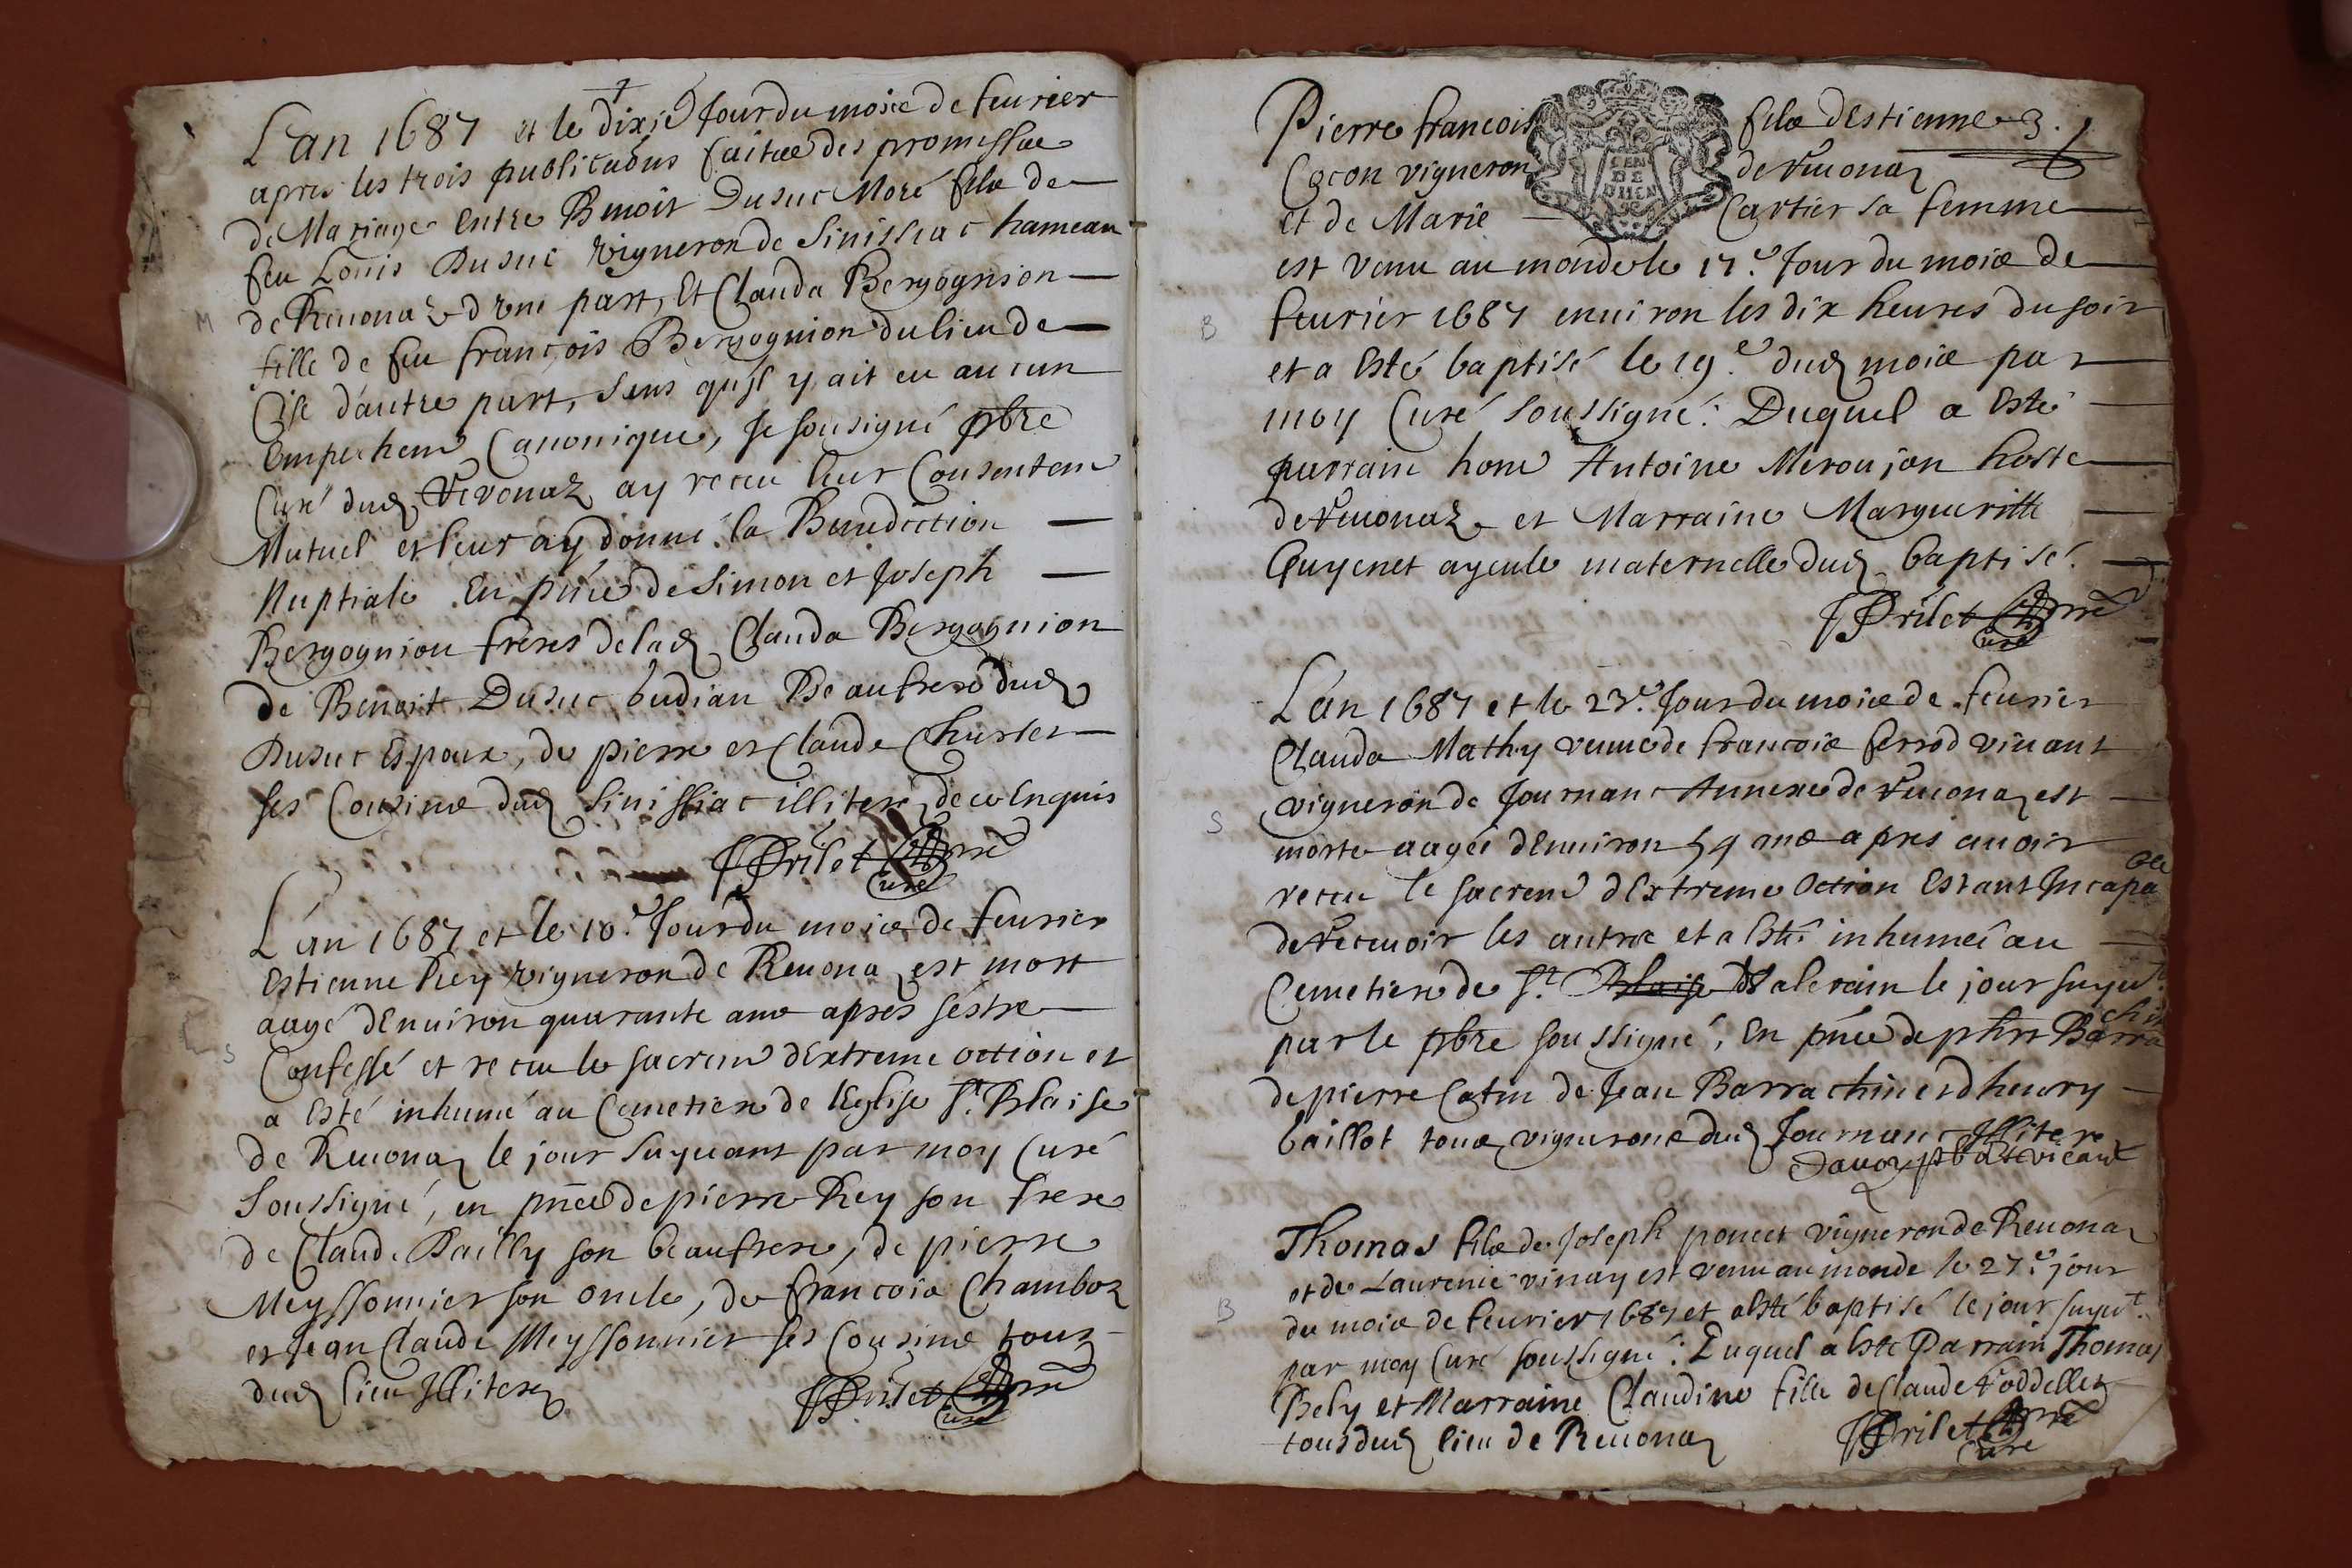 L'an 1687 et le dixie Jour du mois de feurier
apres les trois publicaõns faitte des promesse
de Mariage Entre Benoit Dusuc Moré fils de
feu Louis Dusuc vigneron de Sinissiac hameau
de Reuonaz d'une part, Et Clauda Bergognion
fille de feu françois Bergognion du lieu de
Cise d'autre part, sens qu'jl y ait eu aucun
Empechemt Canonique, Je sousigné pbre
Curé dud Revonaz ay receu leur Consentemt
Mutuel et leur ay donné la Benediction
Nuptiale. En pñce de Simon et Joseph
Bergognion freres de lad Clauda Bergognion
de Benoit Dusuc budian Beaufrere dud
Dusuc Espoux, de pierre et Claude Churlet
ses Cousins dud Sinissiac illiteré de ce Enquis
Prilet pbre
Curé
M
L'an 1687 et le 10.e Jour du mois de feurier
Estienne Rey vigneron de Reuona est mort
aagé d'Enuiron quarante ans apres s'estre
Confessé et receu le sacremt d'Extreme onction et
a Esté inhumé au Cemetiere de l'Eglise St. Blaise
de Reuonaz le jour suyuant par moy Curé
Soussigné, en pñce de pierre Rey son frere
de Claude Bailly son beaufrere, de pierre
Meyssonnier son oncle, de françois Chamboz
et Jean Claude Meyssonnier ses Cousins tous
dud lieu Jlliteré
Prilet pbre
Curé
S
Pierre francois fils d'Estienne 3.
Cocon vigneron de Reuonaz
et de Marie Cartier sa femme
GEN
DE
DIIEN
est venu au monde le 17.e Jour du mois de
feurier 1687 enuiron les dix heures du soir
et a Esté baptisé le 19.e dud mois par
moy Curé soussigné: Duquel a Esté
parrain hone Antoine Meroujon hoste
de Reuonaz et Marraine Margueritte
Guyenet ayeule maternelle dud baptisé.
Prilet pbre
Curé
B
L'an 1687 et le 23.e Jour du mois de feurier
Clauda Mathy veuue de francois ferrod viuant
vigneron de Journanc Annexe de Reuonaz est
morte aagée d'Enuiron 54 ans apres auoir
receu le sacremt d'Extreme Oction Estant Jncapable
de Receuoir les autres et a Esté inhumée au
Cemetiere de St. Blaise Valerain le jour suyut.
par le pbre soussigné, En pñce de phtt Barrachin
de pierre Catin de Jean Barrachin et d'henry
baillot tous vignerons dud Journanc Jlliteré
Dauoy pbre vicaire
S
Thomas fils de Joseph poncet vigneron de Reuonaz
et de Laurence vinay est venu au monde le 27.e jour
du mois de feurier 1687 et a Esté baptisé le jour suyut.
par moy Curé soussigné: Duquel a Esté Parrain Thomas
Bely et Marraine Claudine fille de Claude Roddellet
tous dud lieu de Reuonaz
Prilet pbre
Curé
B